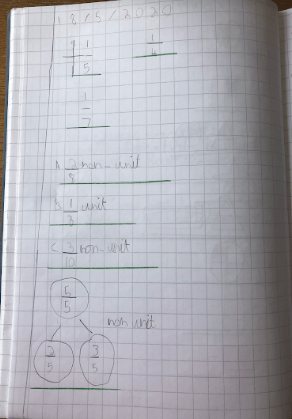 18/5/2020
1/5 1/6
1/7
A 2/8 non-unit
B 1/8 unit
C 3/10 non-unit
5/5
non unit
2/5 3/5